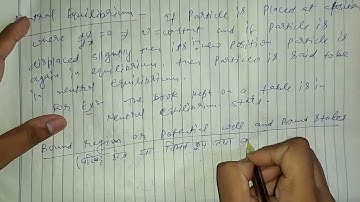 Neutral Equilibrium - If Particle is placed at a position
where du/dx = 0 ⇒ U = constant and if particle is
displaced slightly then its new position particle is
again in equilibrium. then particle is said to be
in neutral equilibrium
For Ex - The book kept on a table is in
Neutral state.
Bound Region or Potential well and Bound States